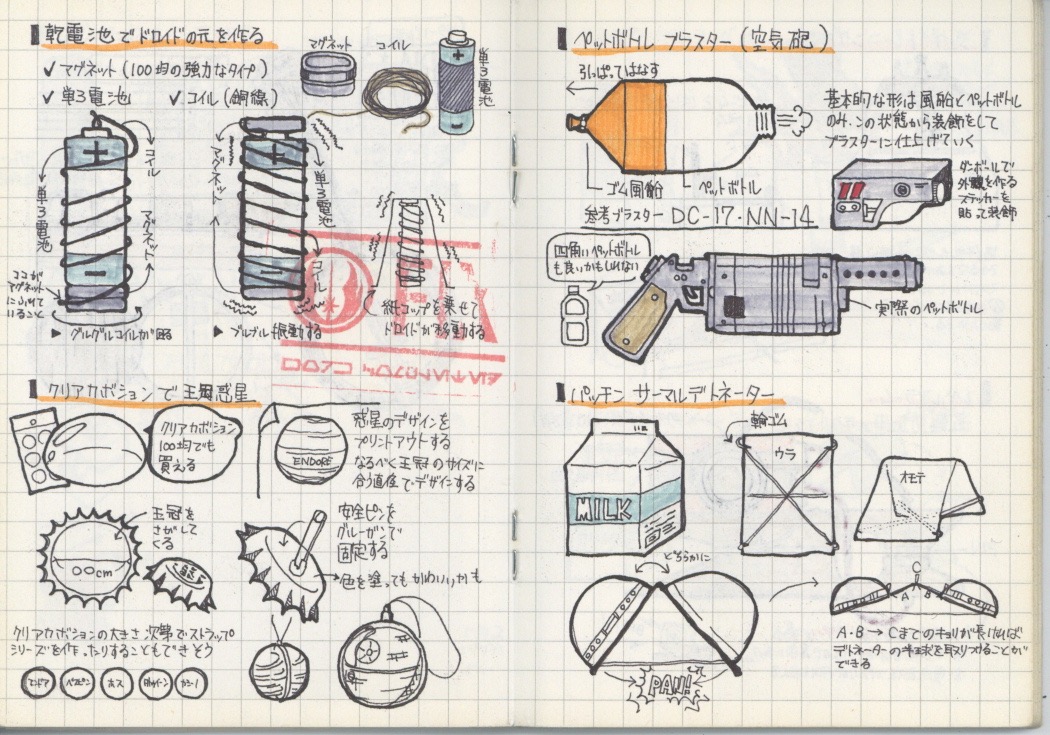 乾電池でドロイドの元を作る
✓ マグネット(100均の強力なタイプ)
✓ 単3電池 ✓ コイル(銅線)
マグネット
コイル
単3電池
単3電池
コイル
マグネット
ココが
マグネット
にふれて
いること
▶ グルグルコイルが回る
マグネット
単3電池
コイル
▶ ブルブル振動する
紙コップを乗せて
ドロイドが移動する
クリアカボションで王冠惑星
クリアカボション
100均でも
買える
ENDORE
惑星のデザインを
プリントアウトする
なるべく王冠のサイズに
合う直径でデザインする
○○cm
王冠を
さがして
くる
安全ピンを
グルーガンで
固定する
色を塗ってもかわいいかも
クリアカボションの大きさ次第でストラップ
シリーズを作ったりすることもできそう
エンドア
ベスピン
ホス
ペットボトル ブラスター(空気砲)
引っぱってはなす
ゴム風船
ペットボトル
基本的な形は風船とペットボトル
のみ。この状態から装飾をして
ブラスターに仕上げていく
参考ブラスター DC-17・NN-14
ダンボールで
外観を作る
ステッカーを
貼って装飾
四角いペットボトル
も良いかもしれない
実際のペットボトル
パッチン サーマルデトネーター
MILK
輪ゴム
ウラ
オモテ
どちらかに
PAN!!
C
A
B
A・B→Cまでのキョリが長ければ
デトネーターの半球を取りつけることが
できる